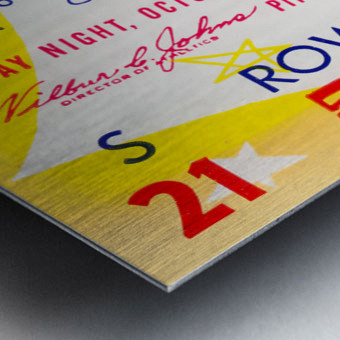 AY NIGHT, OCTO
Wilbur C. Johns
DIRECTOR OF ATHLETICS
ROW
S
21